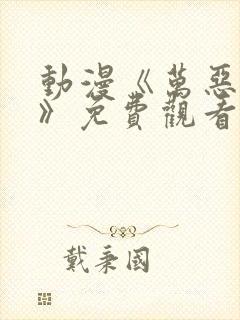 動漫《萬惡
》免費觀看
戴秉國